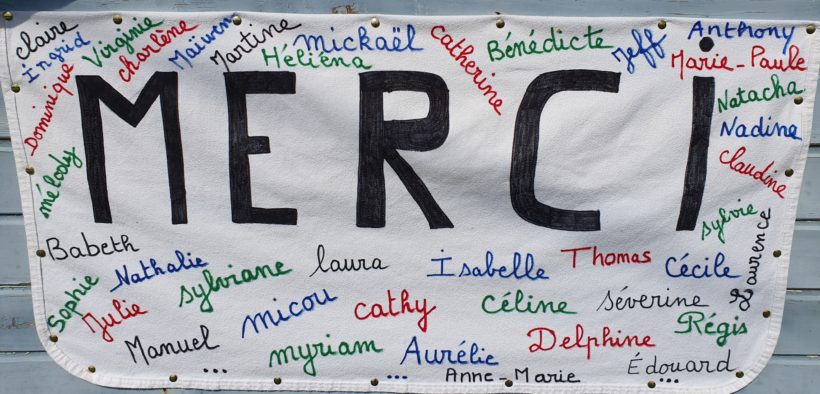 claire
Ingrid
Virginie
charlène
Maïwen
Martine
Héliéna
mickaël
catherine
Bénédicte
Jeff
Anthony
Marie-Paule
Dominique
MERCi
Natacha
Nadine
claudine
mélody
sylvie
Laurence
Babeth
Nathalie
sylviane
laura
Isabelle
Thomas
Cécile
Sophie
Julie
micou
cathy
céline
séverine
Régis
Manuel
myriam
Aurélie
Delphine
Édouard
...
...
Anne-Marie
...